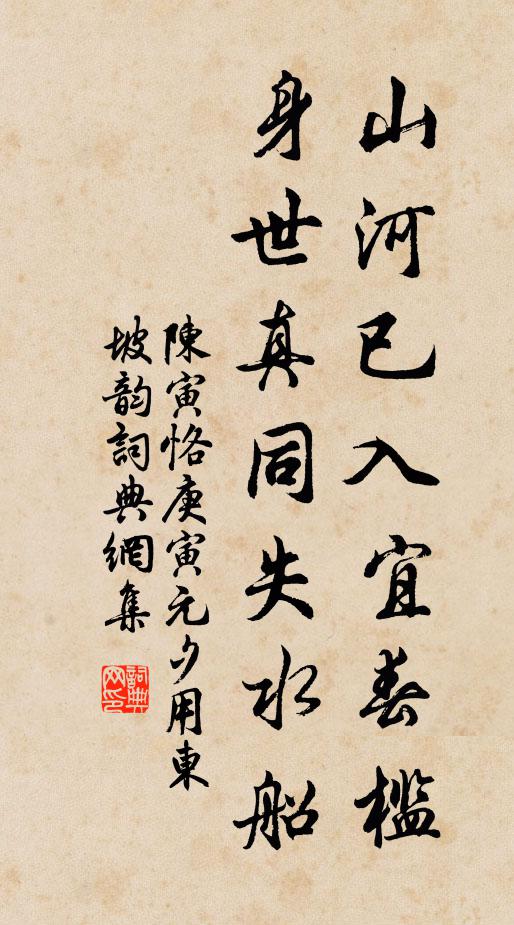 山河已入宜春檻
身世真同失水船
陳寅恪庚寅元夕用東
坡韵詞典網集
詞典
网印